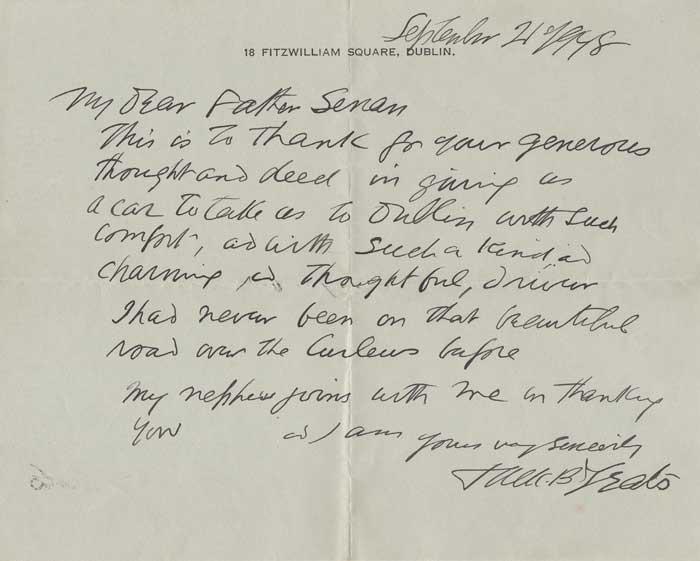 September 21st 1948
18 FITZWILLIAM SQUARE, DUBLIN.
My Dear Father Senan
This is to thank for your generous
thought and deed in giving us
a car to take us to Dublin with such
comfort, ad with such a kind, ad
charming, ad thoughtful, driver
I had never been on that beautiful
road over the Curlews before
My nephew joins with me in thanking
you ad I am yours very sincerely
Jack. B Yeats